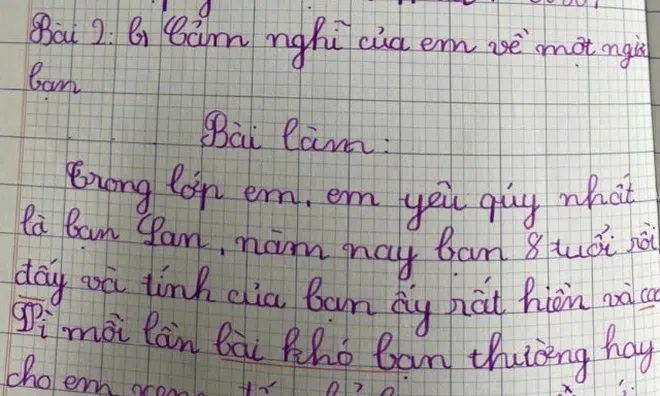 Bài 2: G Cảm nghĩ của em về một người
bạn
Bài làm:
Trong lớp em, em yêu qúy nhất
là bạn Lan, năm nay bạn 8 tuổi rồi
đấy và tính của bạn ấy rất hiền và
Vì mỗi lần bài khó bạn thường hay
cho em